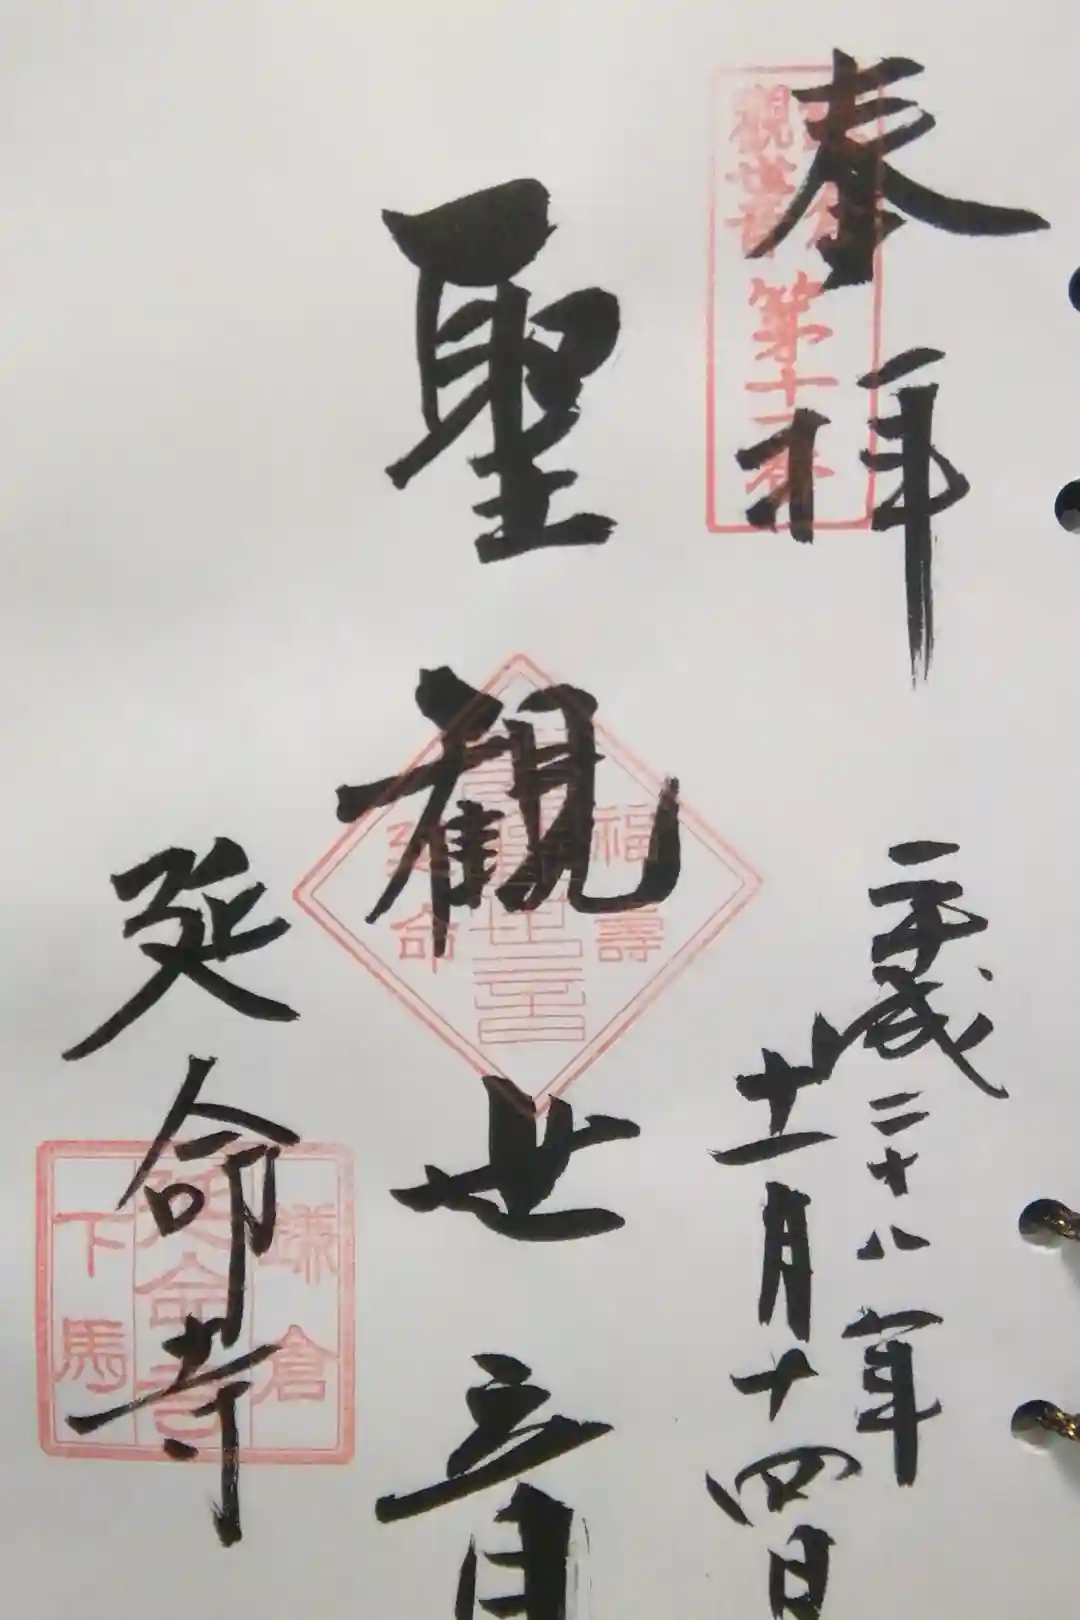 奉拝
観世音
第十一番
平成二十八年
十一月十四日
聖観世音
福壽
延命
延命寺
鎌倉
延命寺
下馬